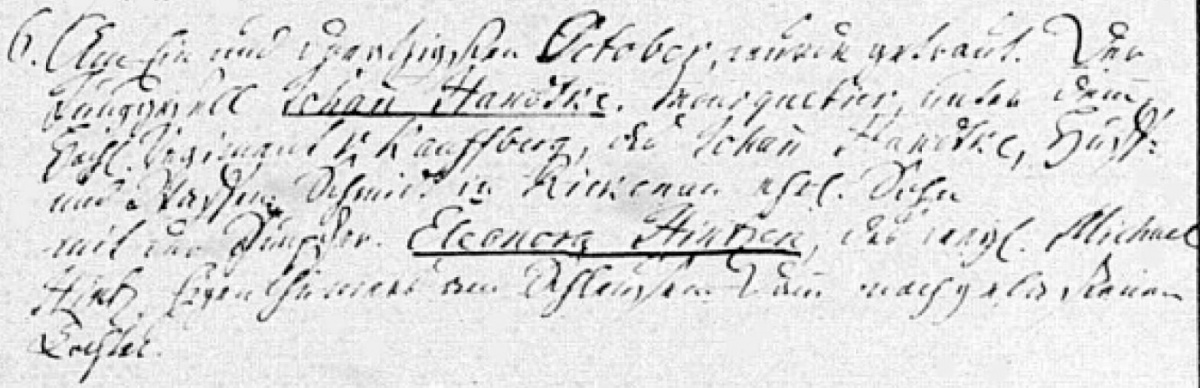 6. Am Ein und zwantzigsten October, wurde getraut. Der
Junggesell Johan̄ Handtke. Mousquetier, unter dem
Hochl. Regiment v. Kauffberg, des Johan̄ Handtke, Huff-
und Waffen Schmidt in Rickenau ehel. Sohn
mit der Jungfer. Eleonora Hintzen, des weyl. Michael
Hintz, Eigenthümers am Schleusen Dam̄ nachgelassenen
Tochter.